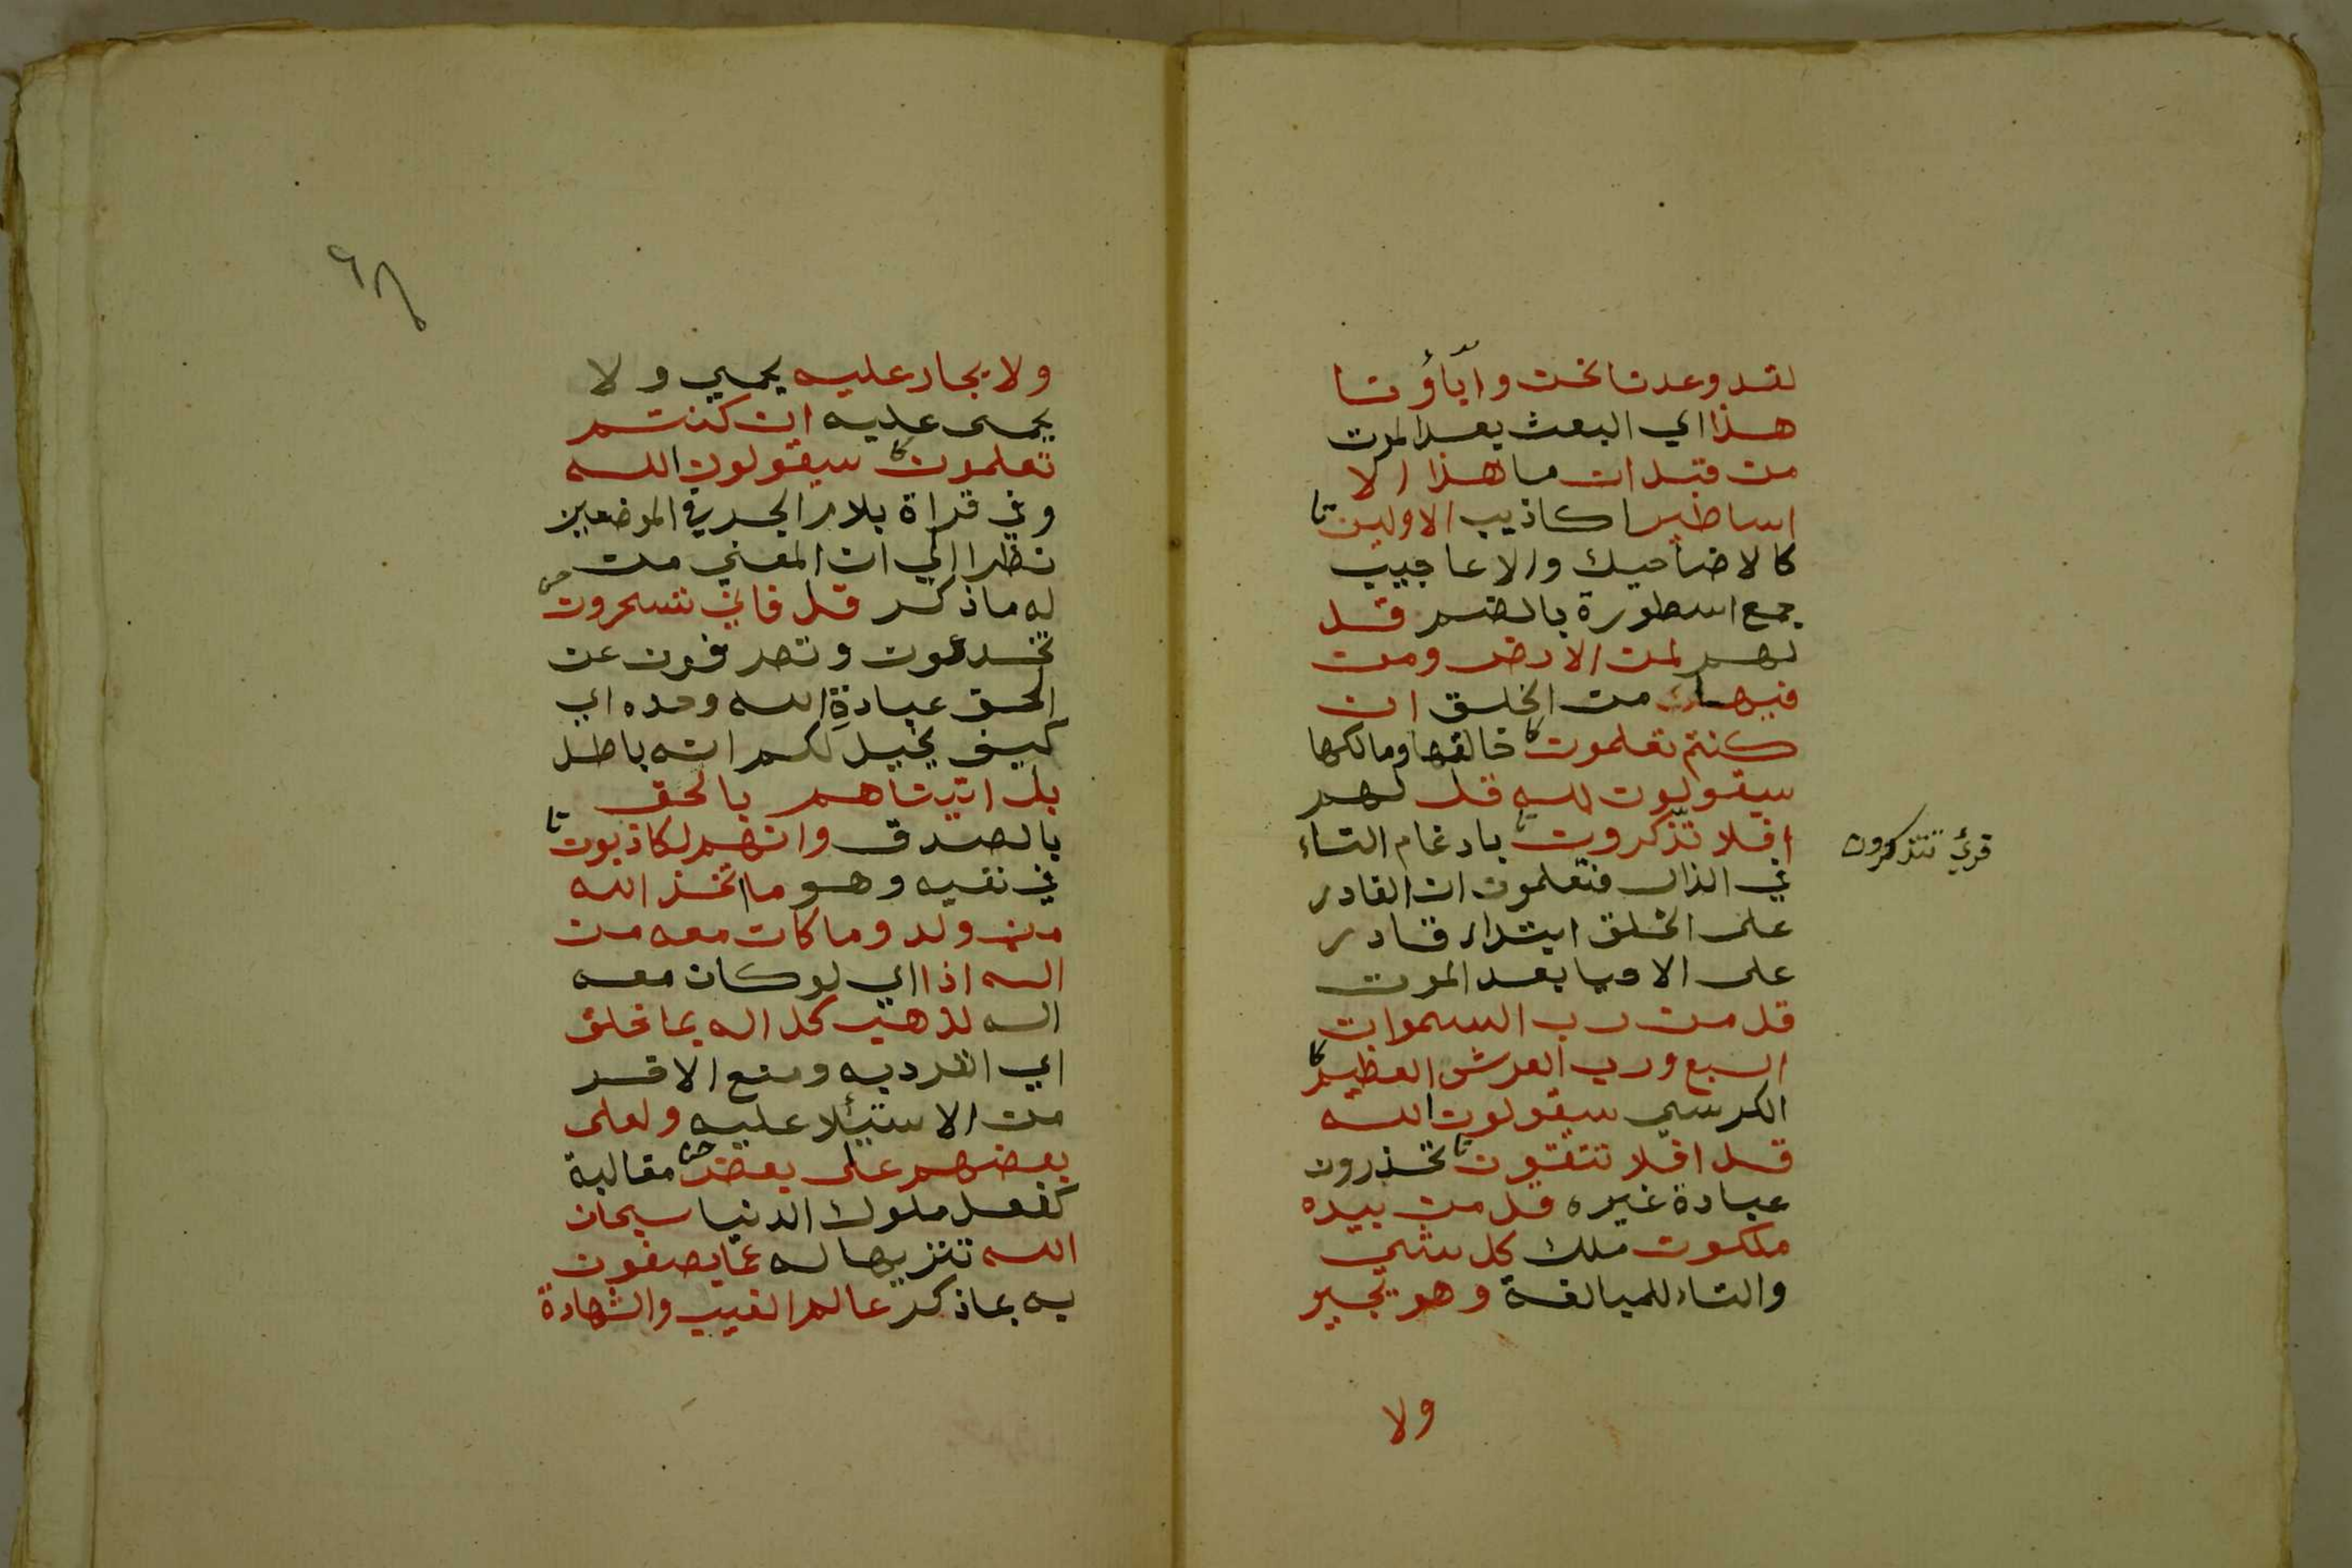 لقد وعدنا نحن واباؤنا
هذا اي البعث بعد الموت
من قبل ان ما هذا الا
اساطير اكاذيب الاولين
كالاضاحيك والاعاجيب
جمع اسطورة بالضم قل
لهم لمن الارض ومن
فيها من الخلق ان
كنتم تعلمون خالقها ومالكها
سيقولون لله قل لهم
افلا تذكرون بادغام التاء
قرئ تتذكرون
في الذال فتعلمون ان القادر
على الخلق ابتداء قادر
على الاحيا بعد الموت
قل من رب السموات
السبع ورب العرش العظيم
الكرسي سيقولون الله
قل افلا تتقون تحذرون
عبادة غيره قل من بيده
ملكوت ملك كل شي
والتاء للمبالغة وهو يجير
ولا
٦٨
ولا يجار عليه يحمي ولا
يحمى عليه ان كنتم
تعلمون سيقولون الله
وفي قراة بلام الجر في الموضعين
نظرا الي ان المعني من
له ما ذكر قل فاني تسحرون
تخدعون وتصرفون عن
الحق عبادة الله وحده اي
كيف يخيل لكم انه باطل
بل اتيناهم بالحق
بالصدق وانهم لكاذبون
في نفيه وهو ما اتخذ الله
من ولد وما كان معه من
اله اذا اي لو كان معه
اله لذهب كل اله بما خلق
اي انفرد به ومنع الاخر
من الاستيلا عليه ولعلى
بعضهم على بعض مغالبة
كفعل ملوك الدنيا سبحان
الله تنزيها له عما يصفون
به بما ذكر عالم الغيب والشهادة